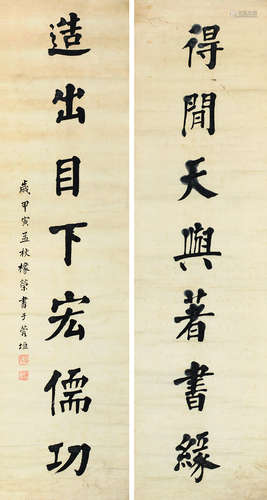 得閒天與著書緣
造出目下宏儒功
歲甲寅孟秋樣榮書于菅垣